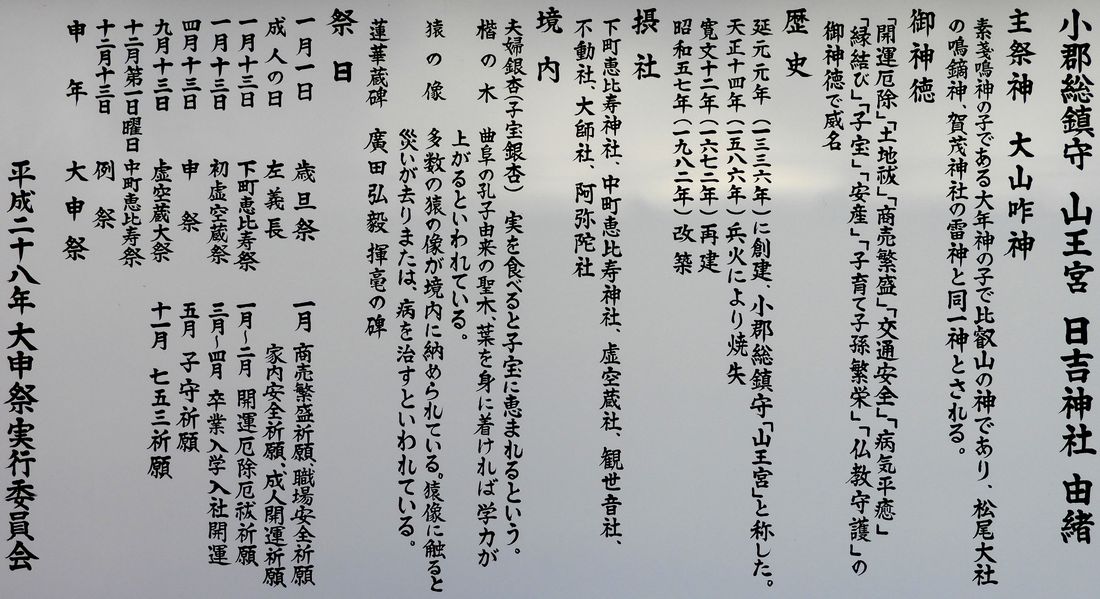 小郡総鎮守 山王宮 日吉神社 由緒
主祭神 大山咋神
素戔鳴神の子である大年神の子で比叡山の神であり、松尾大社
の鳴鏑神、賀茂神社の雷神と同一神とされる。
御神徳
「開運厄除」「土地祓」「商売繁盛」「交通安全」「病気平癒」
「縁結び」「子宝」「安産」「子育て子孫繁栄」「仏教守護」の
御神徳で威名
歴史
延元元年(一三三六年)に創建、小郡総鎮守「山王宮」と称した。
天正十四年(一五八六年)兵火により焼失
寛文十二年(一六七二年)再建
昭和五七年(一九八二年)改築
摂社
下町恵比寿神社、中町恵比寿神社、虚空蔵社、観世音社、
不動社、大師社、阿弥陀社
境内
夫婦銀杏(子宝銀杏) 実を食べると子宝に恵まれるという。
楷の木 曲阜の孔子由来の聖木、葉を身に着ければ学力が
上がるといわれている。
猿の像 多数の猿の像が境内に納められている。猿像に触ると
災いが去りまたは、病を治すといわれている。
蓮華蔵碑 廣田弘毅揮亳の碑
祭日
一月一日 歳旦祭 一月 商売繁盛祈願、職場安全祈願
成人の日 左義長 家内安全祈願、成人開運祈願
一月十三日 下町恵比寿祭 一月~二月 開運厄除厄祓祈願
一月十三日 初虚空蔵祭 三月~四月 卒業入学入社開運
四月十三日 申祭 五月 子守祈願
九月十三日 虚空蔵大祭 十一月 七五三祈願
十二月第一日曜日 中町恵比寿祭
十二月十三日 例祭
申年 大申祭
平成二十八年大申祭実行委員会